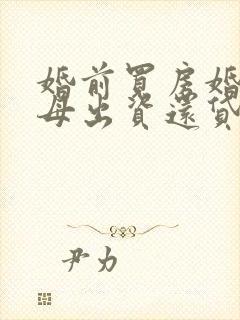 婚前買房婚
母出資還貸
尹力